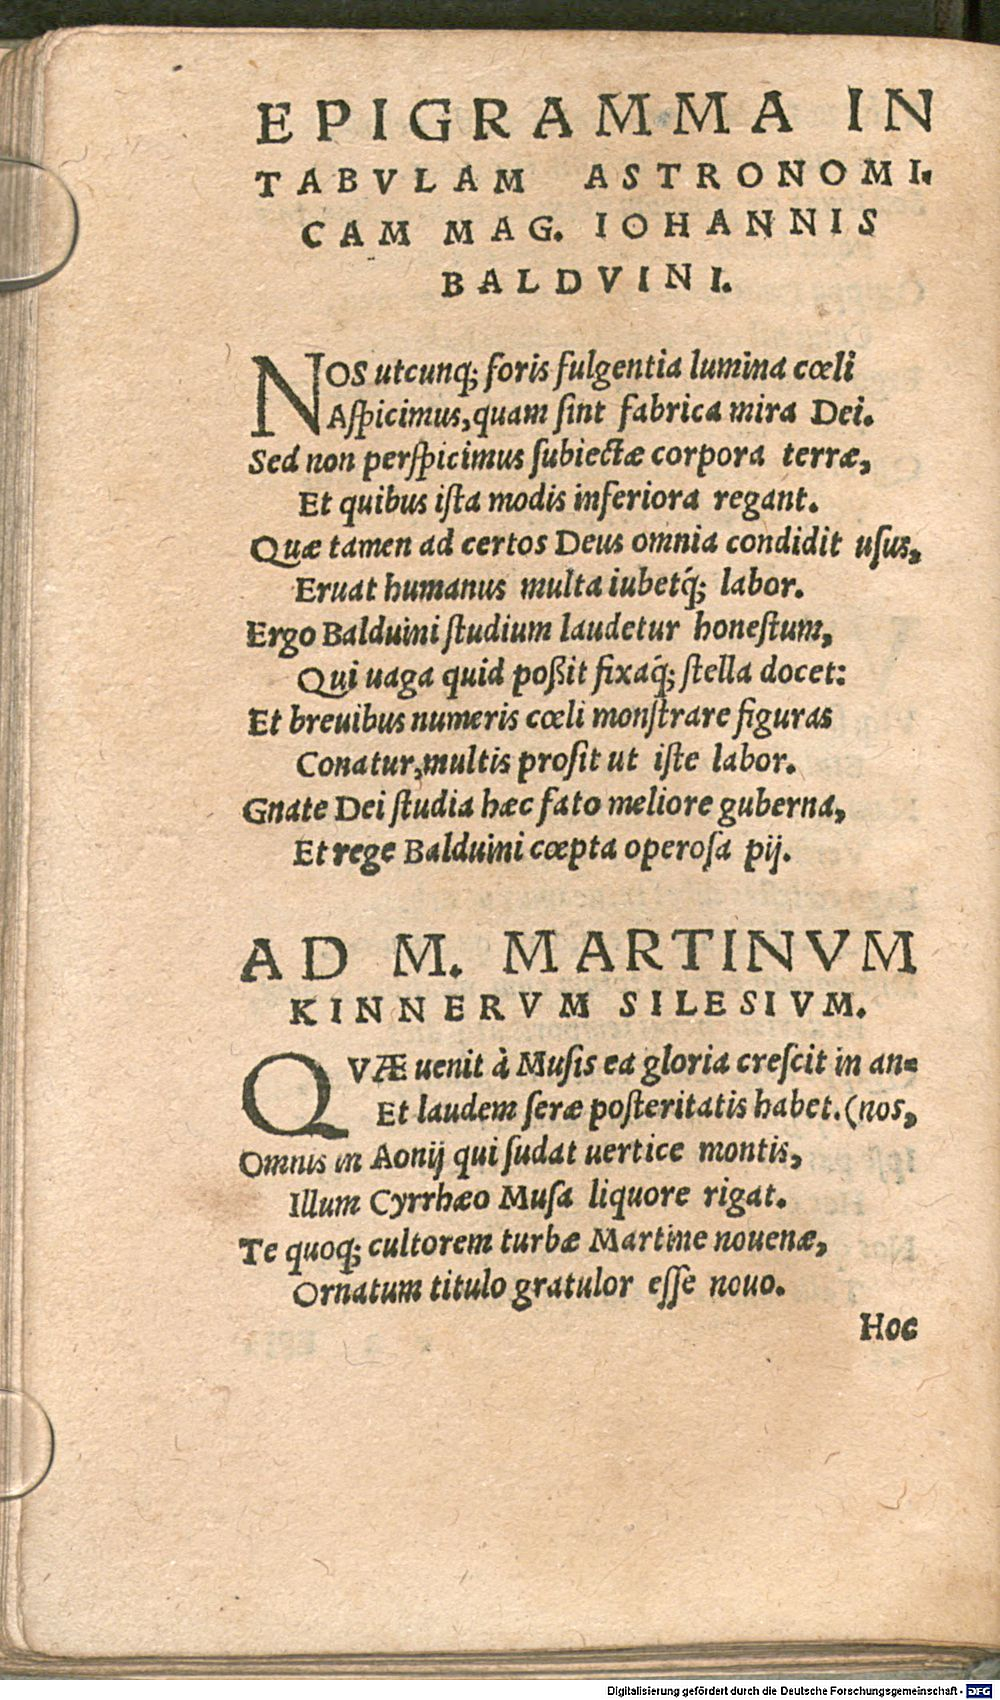 EPIGRAMMA IN
TABVLAM ASTRONOMI-
CAM MAG. IOHANNIS
BALDVINI.
NOS utcunq; foris fulgentia lumina cœli
Aſpicimus, quam ſint fabrica mira Dei.
Sed non perſpicimus ſubiectæ corpora terræ,
Et quibus iſta modis inferiora regant.
Quæ tamen ad certos Deus omnia condidit uſus,
Eruat humanus multa iubetq́; labor.
Ergo Balduini ſtudium laudetur honeſtum,
Qui uaga quid poßit fixaq́; ſtella docet:
Et breuibus numeris cœli monſtrare figuras
Conatur, multis proſit ut iſte labor.
Gnate Dei ſtudia hæc fato meliore guberna,
Et rege Balduini cœpta operoſa pij.
AD M. MARTINVM
KINNERVM SILESIVM.
QVÆ uenit à Muſis ea gloria creſcit in an-
Et laudem ſeræ poſteritatis habet. (nos,
Omnis in Aonij qui ſudat uertice montis,
Illum Cyrrhæo Muſa liquore rigat.
Te quoq; cultorem turbæ Martine nouenæ,
Ornatum titulo gratulor eſſe nouo.
Hoc
Digitalisierung gefördert durch die Deutsche Forschungsgemeinschaft - DFG